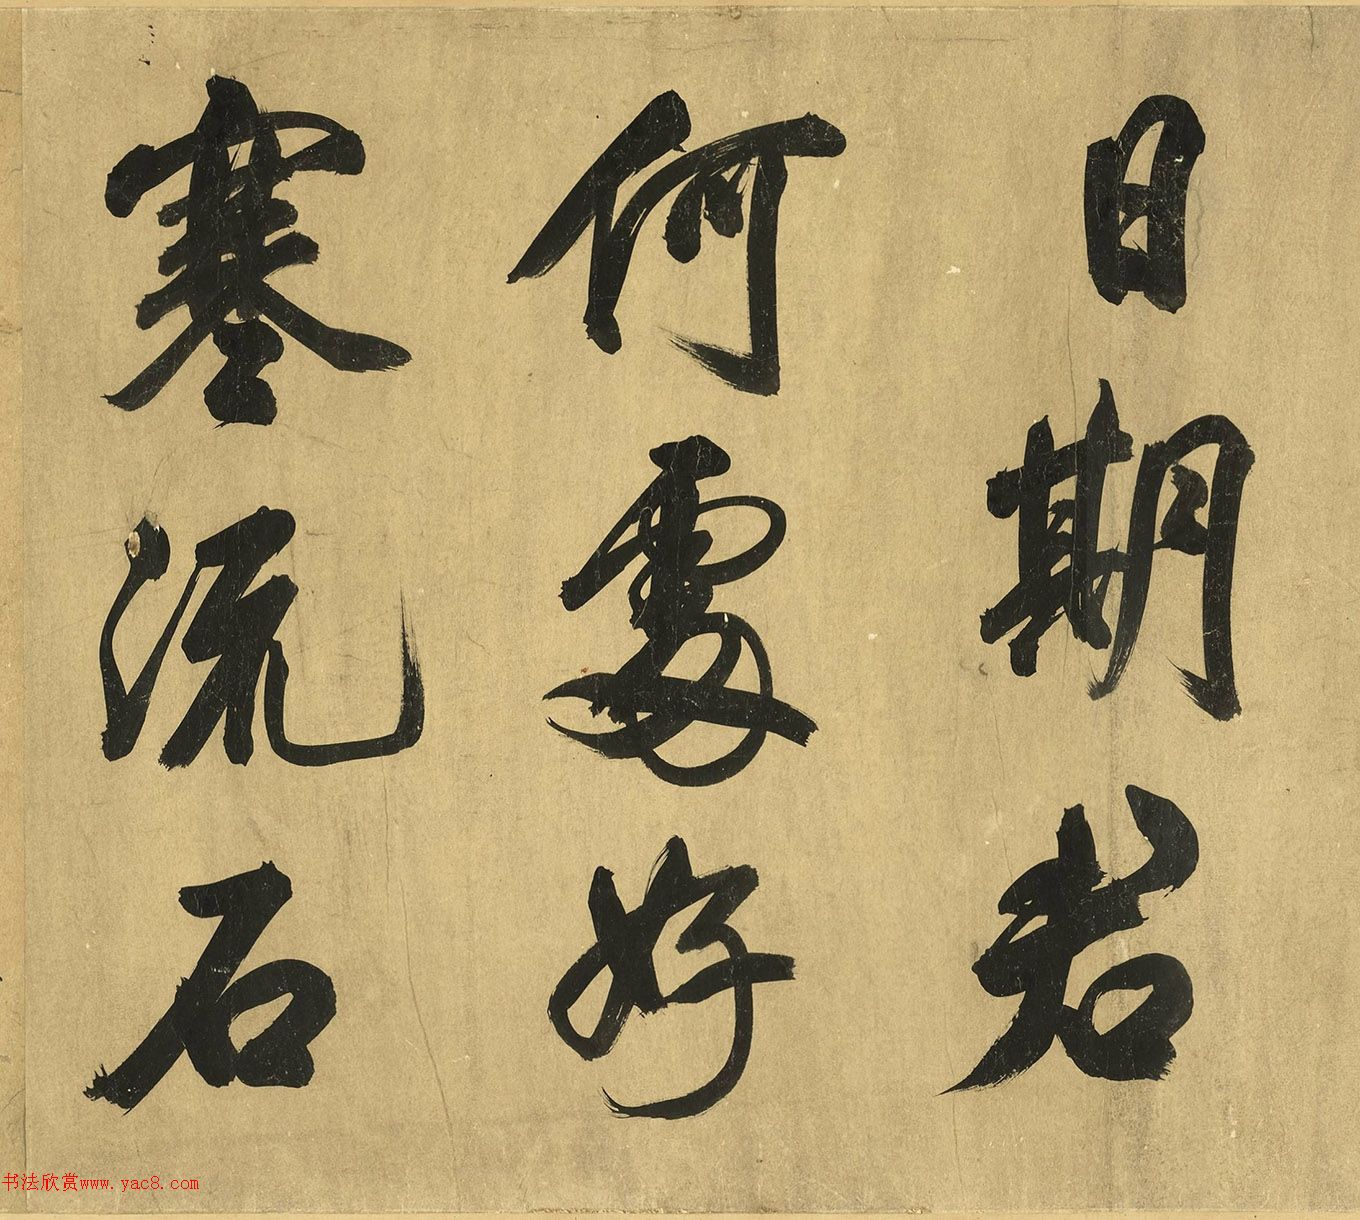 日期若
何處好
寒流石
书法欣赏www.yac8.com